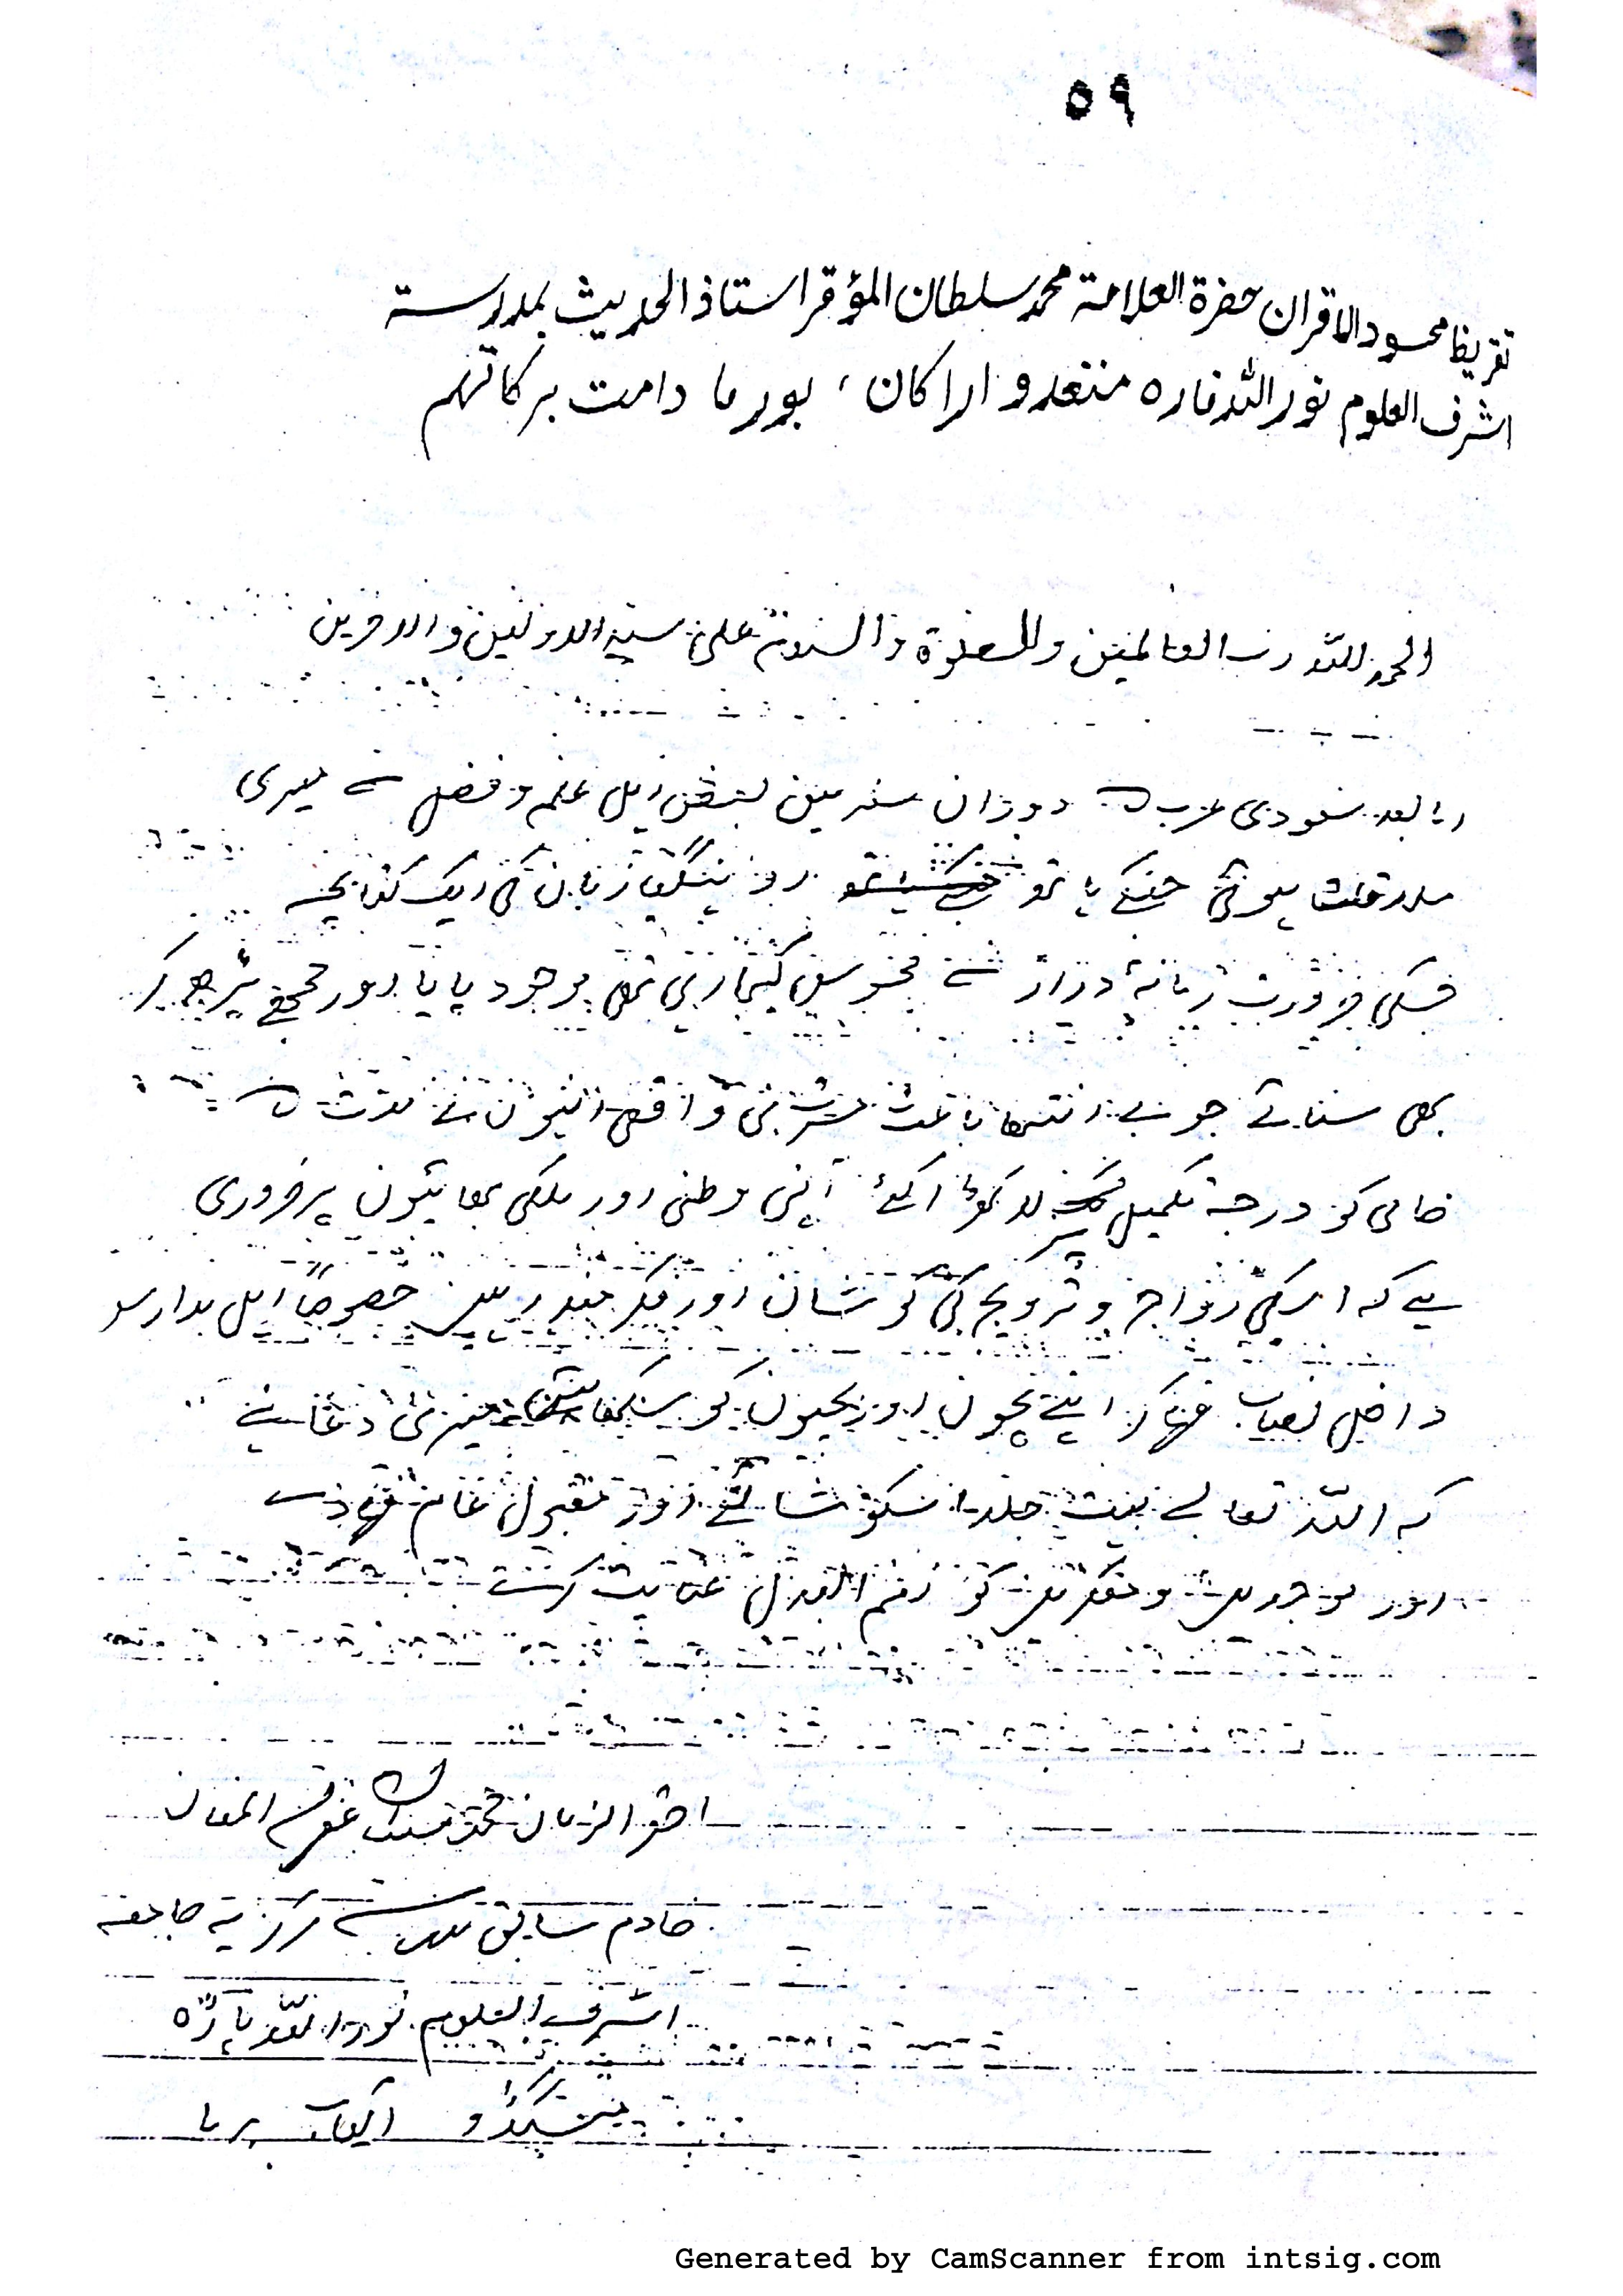 ٥٩
تقریظ محسود الاقران حضرة العلامة محمد سلطان المؤقر استاذ الحدیث بمدرسة
اشرف العلوم نور اللہ فارہ منغدو اراکان ، بورما دامت برکاتہم
الحمد للہ رب العالمین والصلوة والسلام علی سید الاولین والاخرین
اما بعد سعودی عرب کے دوران سفر میں بعض اہل علم و فضل سے میری
ملاقات ہوئی جنکے ہاتھ روہینگیا زبان کی ایک کتابچہ
جسکی ضرورت زمانۂ دراز سے محسوس کیجارہی تھی موجود پایا اور مجھے پڑھ کر
بھی سنائے جو بے انتہا باعث مسرت بنی واقعی انہوں نے مدت کے
خامی کو درجۂ تکمیل پر لا کھڑا کئے اپنی وطنی اور ملکی بھائیوں پر ضروری
ہے کہ اسکی رواج و ترویج کی کوشاں اور فکر مند رہیں خصوصاً اہل مدارس
داخل نصاب فرماکر اپنے بچوں اور بچیوں کو سکھائیں میری دعا ہے
کہ اللہ تعالے بہت جلد اسکو شائع اور مقبول عام فرمادے
اور موجدین و مفکرین کو نعم البدل عنایت کرے
احقر الزمان محمد سلطان غفرلہ المنان
خادم سابق مدرسہ مرکزیہ جامعہ
اشرف العلوم نور اللہ پارہ
منگڈو اکیاب برما
Generated by CamScanner from intsig.com